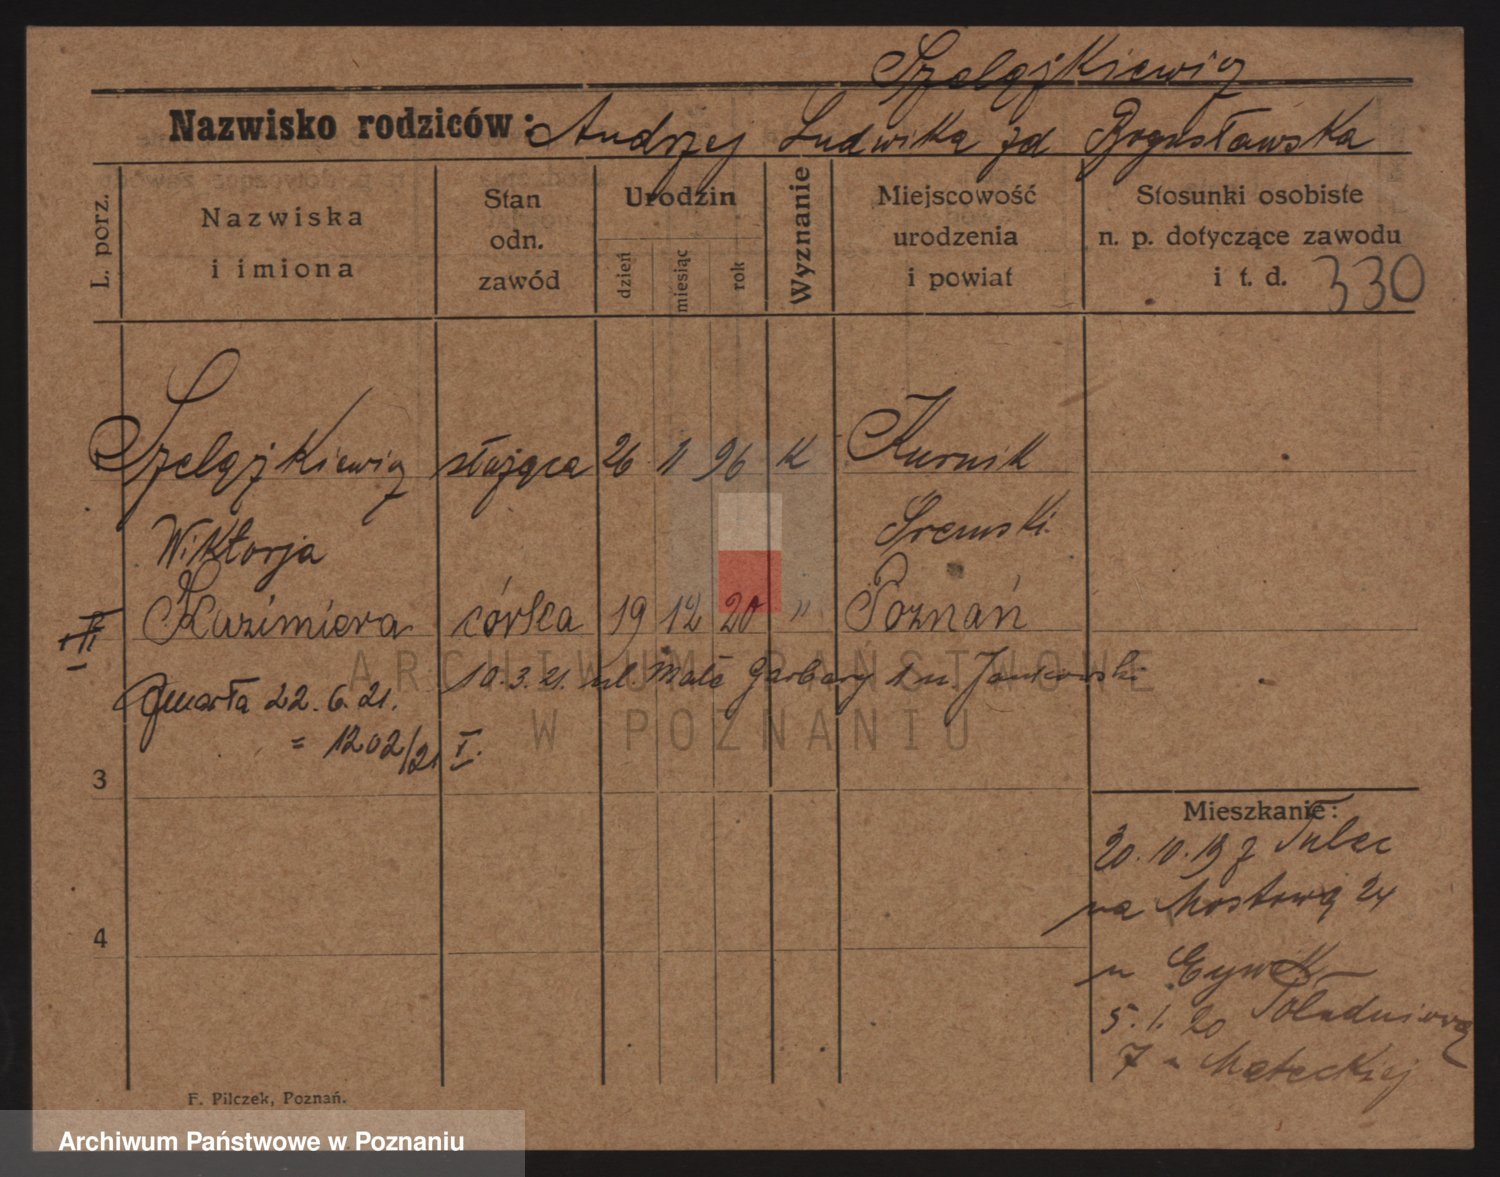 Szelążkiewicz
Nazwisko rodziców: Andrzej Ludwika zd Bogusławska
L. porz.
Nazwiska
i imiona
Stan
odn.
zawód
Urodzin
dzień
miesiąc
rok
Wyznanie
Miejscowość
urodzenia
i powiat
Stosunki osobiste
n. p. dotyczące zawodu
i t. d. 330
Szelążkiewicz służąca 26 11 96 K Kurnik
Wiktorja Sremski
II Kazimiera córka 19 12 20 " Poznań
10.3.21. ul. Małe Garbary 1 u. Jankowski
Umarła 22.6.21.
= 1202/21 I.
3
4
Mieszkanie:
20.10.19 z Tulec
na Mostową 24
u
5.1.20 Południową
7 u Mateckiej
F. Pilczek, Poznań.
ARCHIWUM PAŃSTWOWE
W POZNANIU
Archiwum Państwowe w Poznaniu